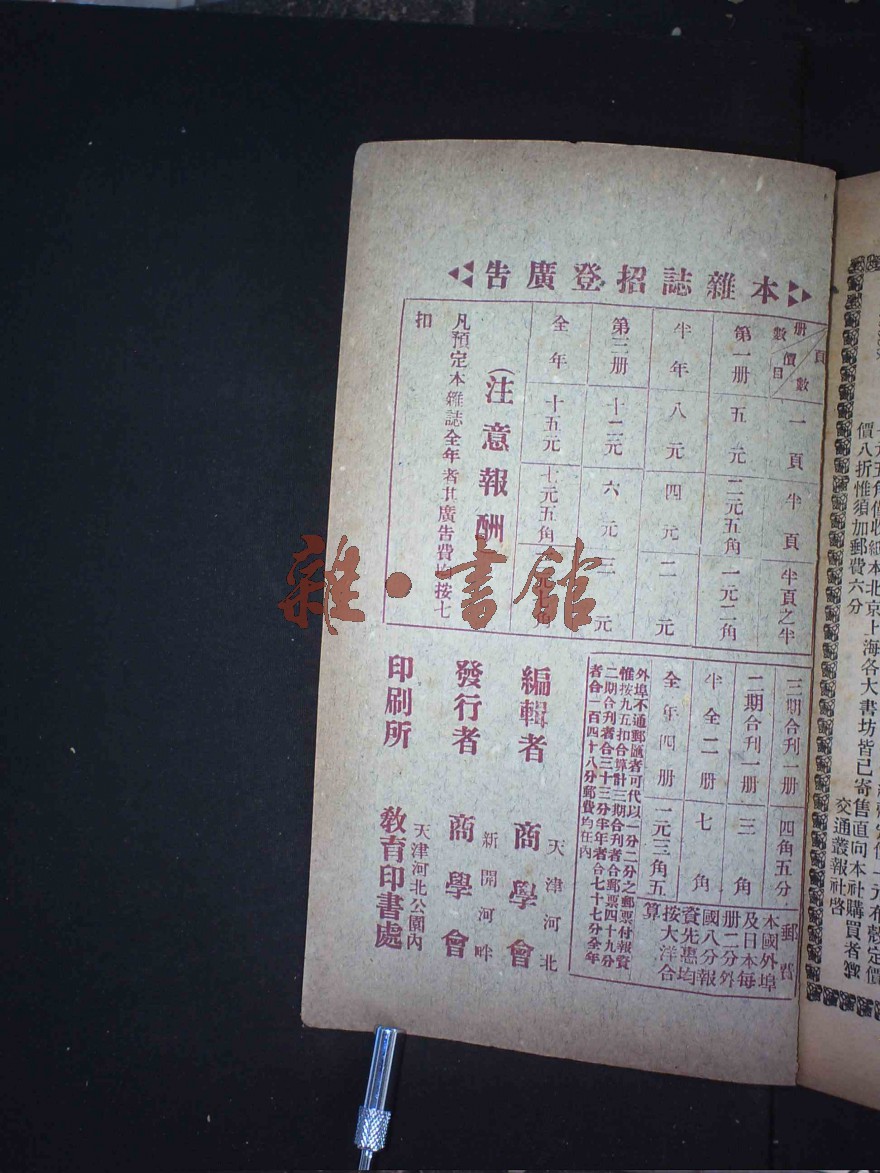 本雜誌招登廣告
頁數 價目 册數
一頁
半頁
半頁之半
第一册
五元
二元五角
一元二角
半年
八元
四元
二元
第三册
十二元
六元
三元
全年
十五元
七元五角
（注意報酬
凡預定本雜誌全年者其廣告費均按七
扣
三期合刊一册
四角五分
二期合刊一册
三角
半全二册
七角
全年四册
一元三角五
郵費
本國外埠
及日本每
册二分外
國八分報
資先惠均
按大洋合
算
外埠不通郵匯者可代以一分二分之郵票付報資
惟按九五扣合算計三期合刊者合郵票四十九分
二期合刊者合三十三分半年者合七十七分全年
者合一百四十八分郵費均在內
編輯者
天津河北
商學會
發行者
新開河畔
商學會
印刷所
天津河北公園內
教育印書處
元五角僅收紙本北京上海各大書坊皆已寄售直向本社購買者
價八折惟須加郵費六分
交通叢報社啓
雜·書館